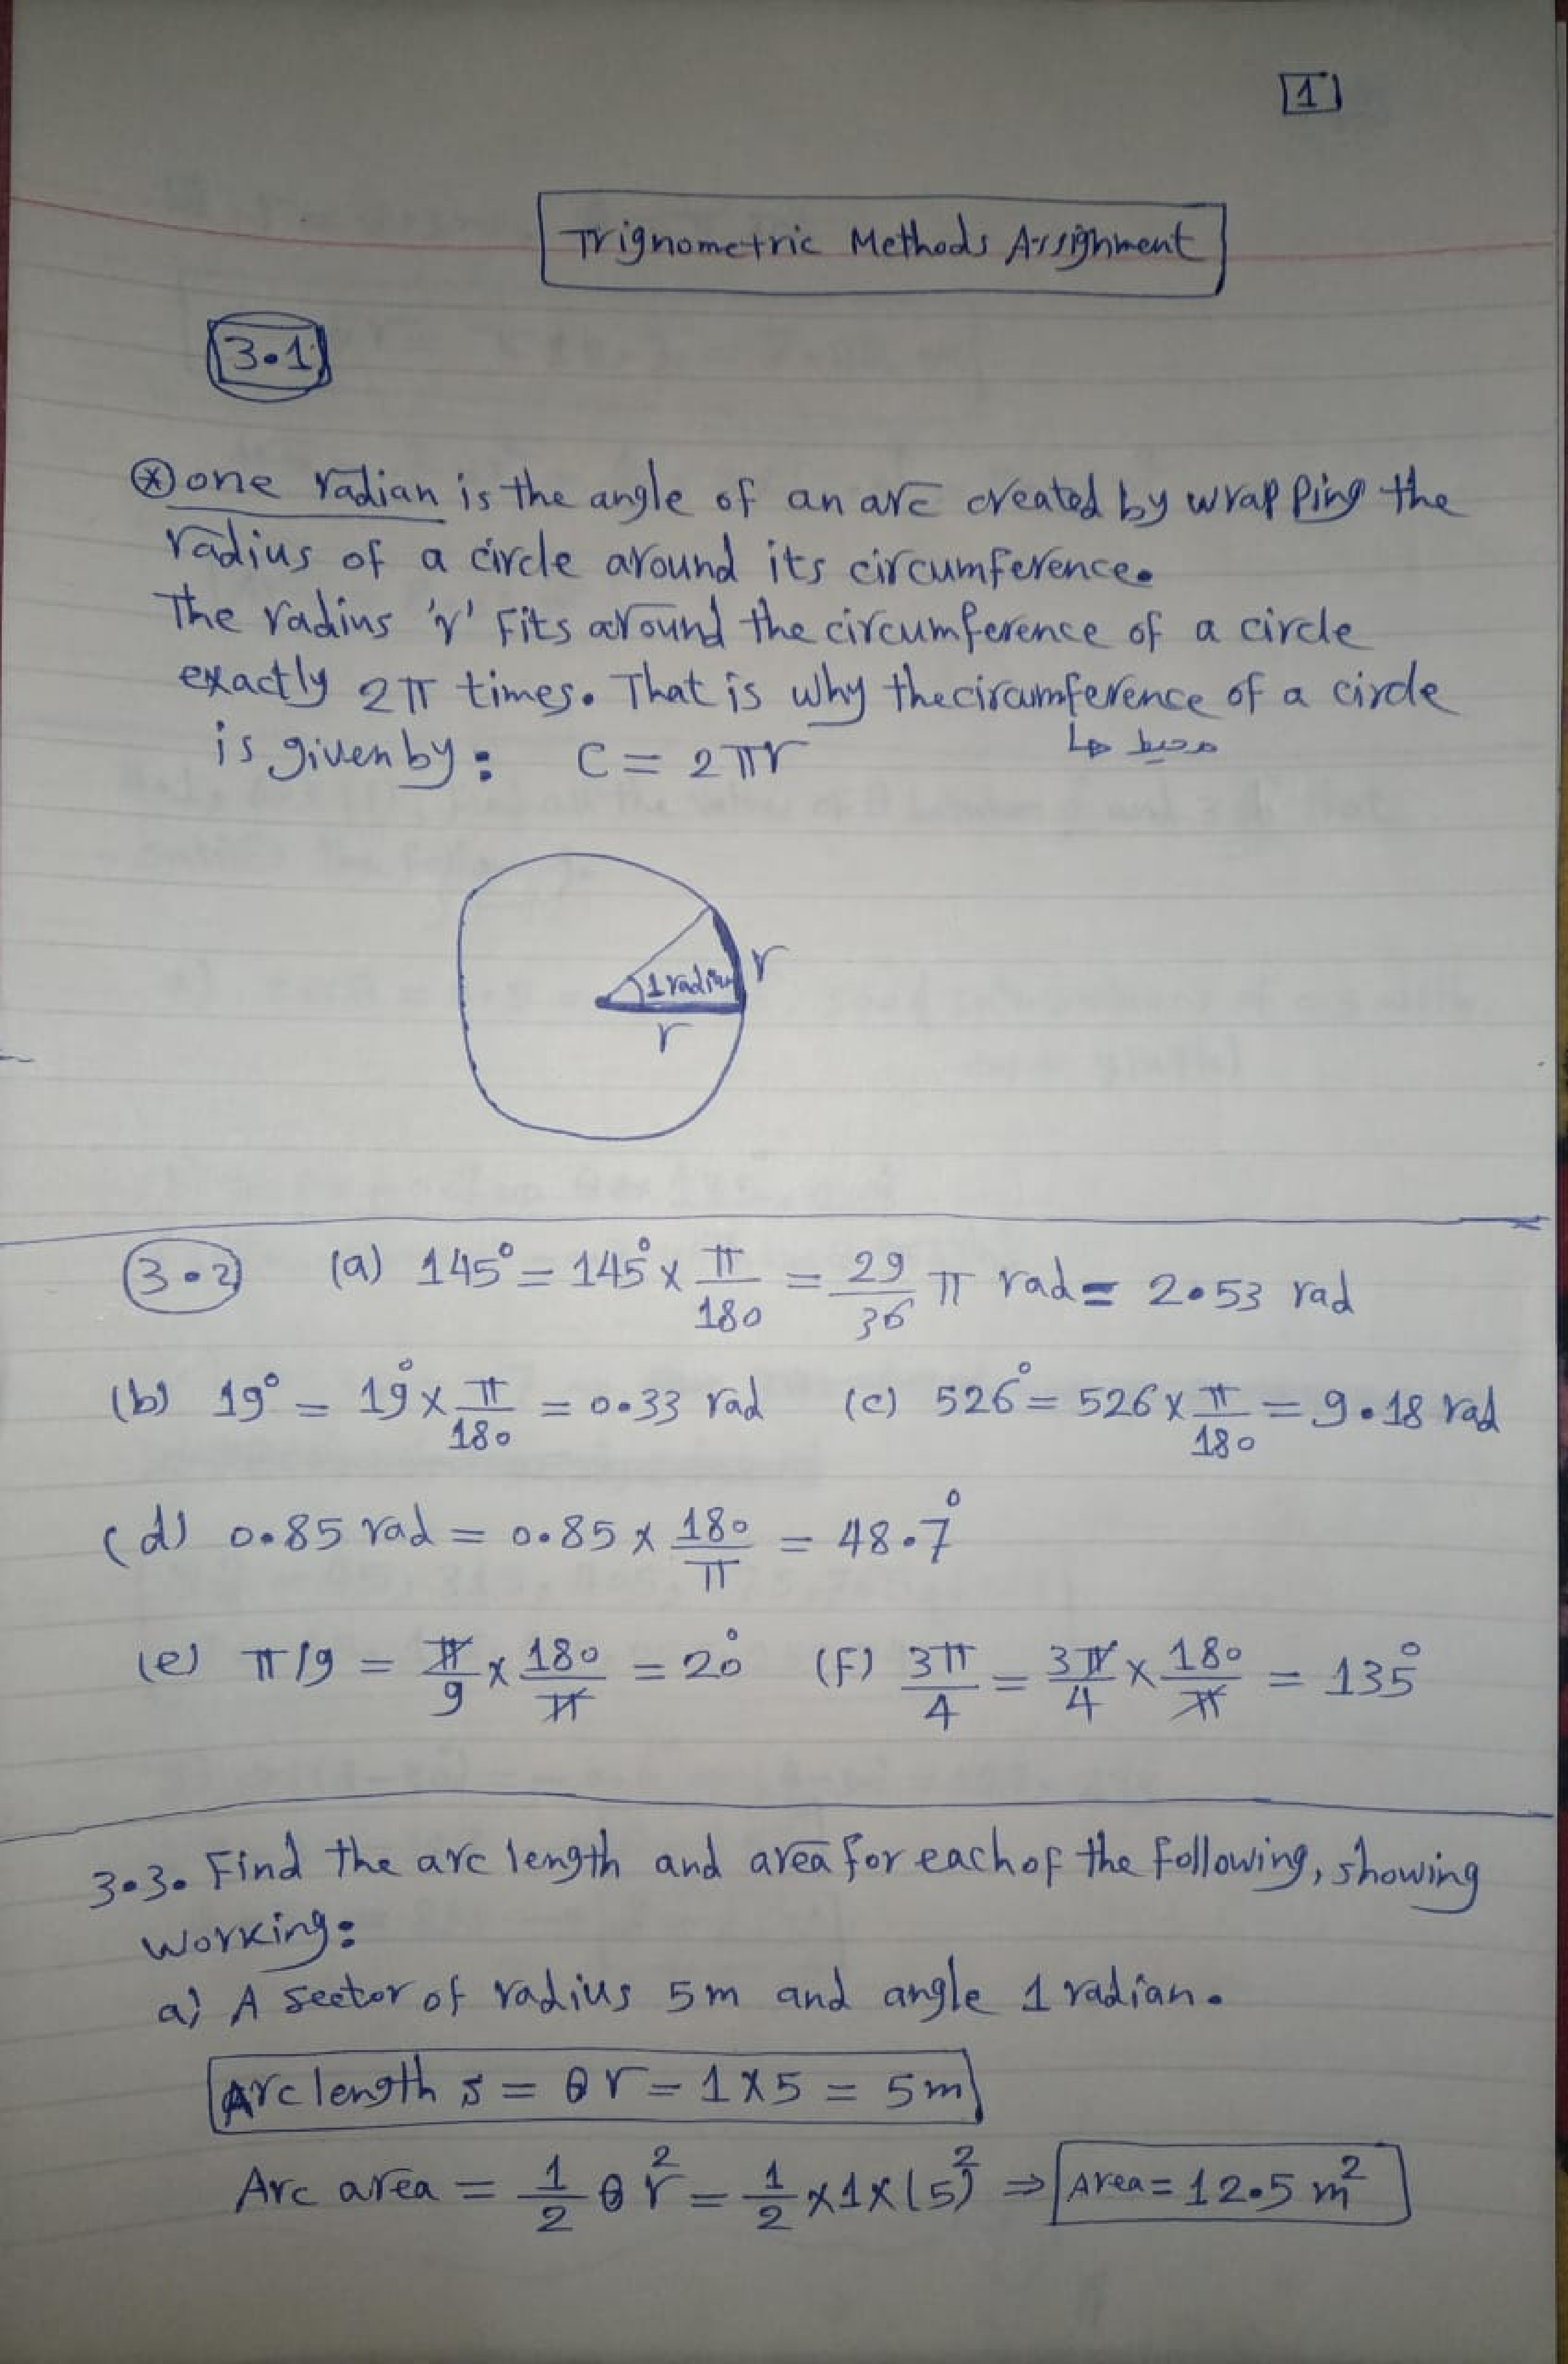 1
Trignometric Methods Assignment
3.1
* one radian is the angle of an arc created by wrapping the
radius of a circle around its circumference.
The radius 'r' Fits around the circumference of a circle
exactly 2π times. That is why the circumference of a circle
محيط
is given by: C = 2πr
1 radian r
r
3.2 (a) 145° = 145° × π/180 = 29/36 π rad = 2.53 rad
(b) 19° = 19° × π/180 = 0.33 rad (c) 526° = 526 × π/180 = 9.18 rad
(d) 0.85 rad = 0.85 × 180/π = 48.7°
(e) π/9 = π/9 × 180/π = 20° (F) 3π/4 = 3π/4 × 180/π = 135°
3.3. Find the arc length and area for each of the following, showing
working:
a) A sector of radius 5m and angle 1 radian.
Arc length s = θr = 1×5 = 5m
Arc area = 1/2 θr² = 1/2 ×1×(5)² ⇒ Area = 12.5 m²